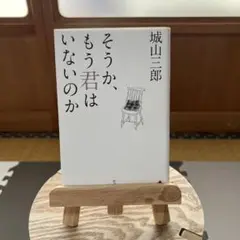 城山三郎
そうか、
もう君は
いないのか